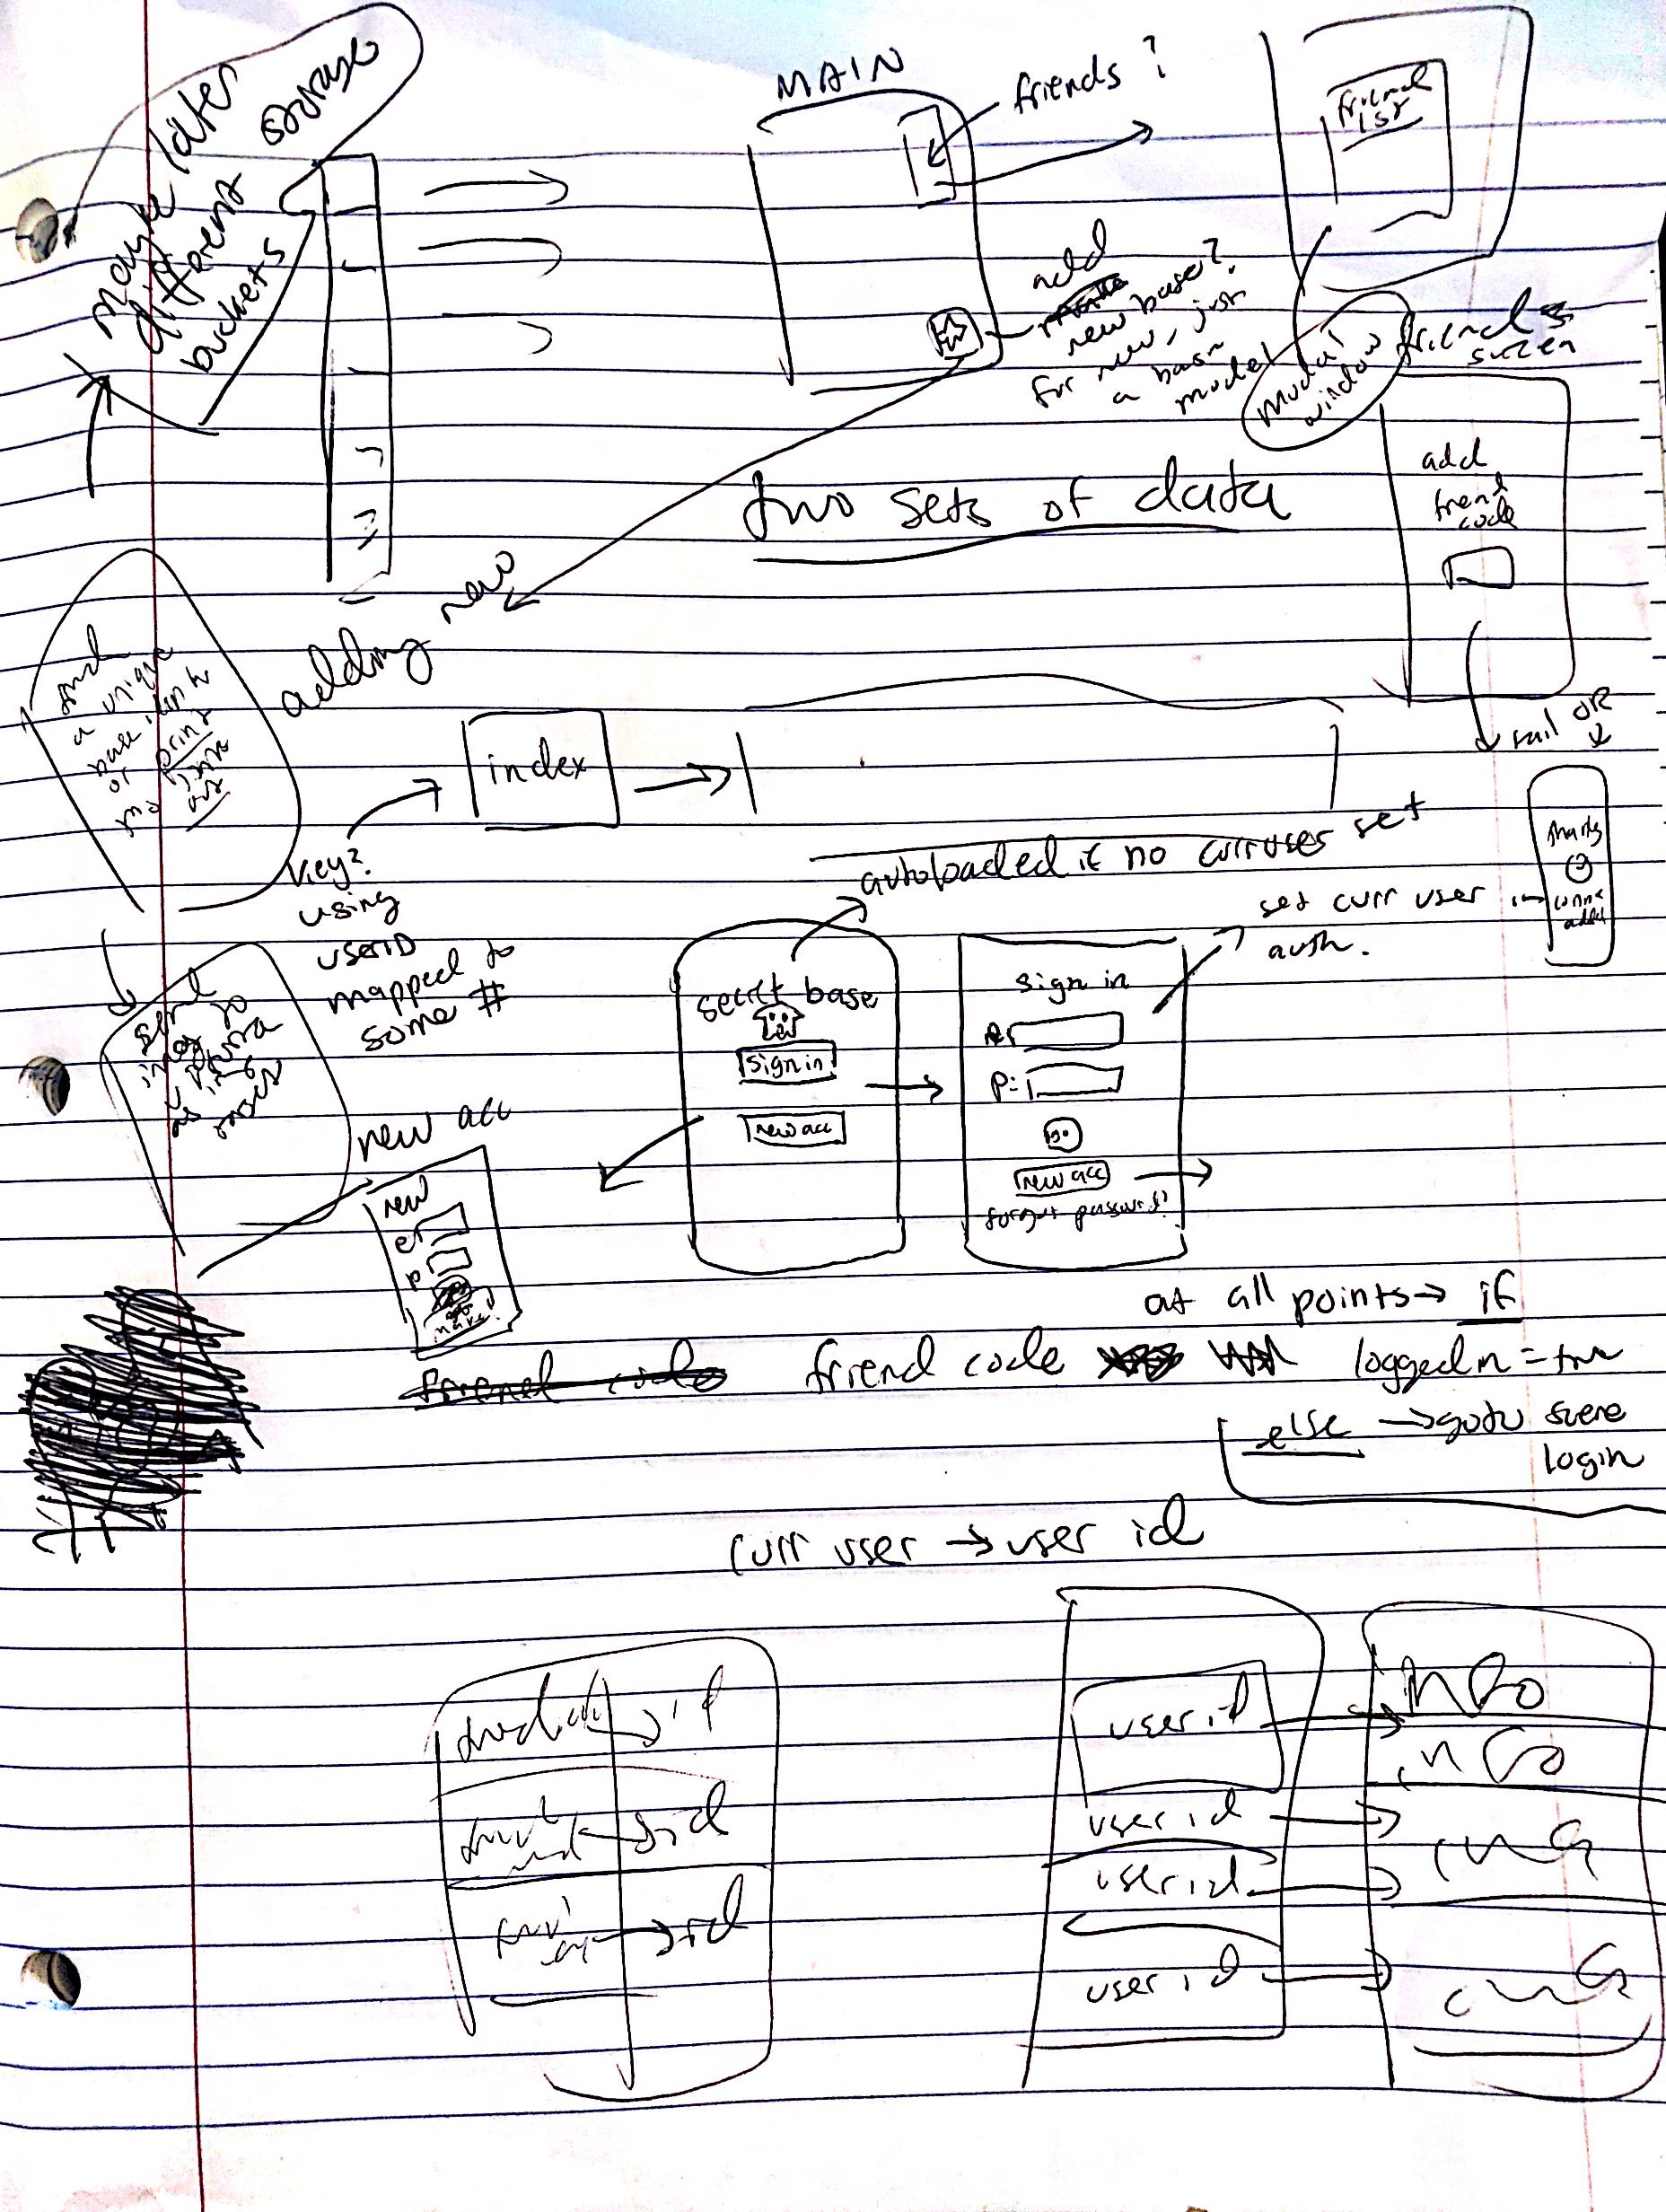 maybe later
different storage
buckets
MAIN
friends?
friend
list
add
new base?
for now, just
a base
model
modal
window
friends
screen
add
friend
code
two sets of data
adding new
send
a unique
base link
or
print
index
fail OR
key?
using
userID
mapped to
some #
autoloaded if no curruser set
set curr user
auth.
thanks
send
info to
as
secret base
sign in
new acc
sign in
p:
go
new acc
forgot password?
new acc
new
e
p
at all points → if
friend code
friend code
loggedin = true
else → goto scene
login
curr user → user id
id
id
user id
user id
user id
user id